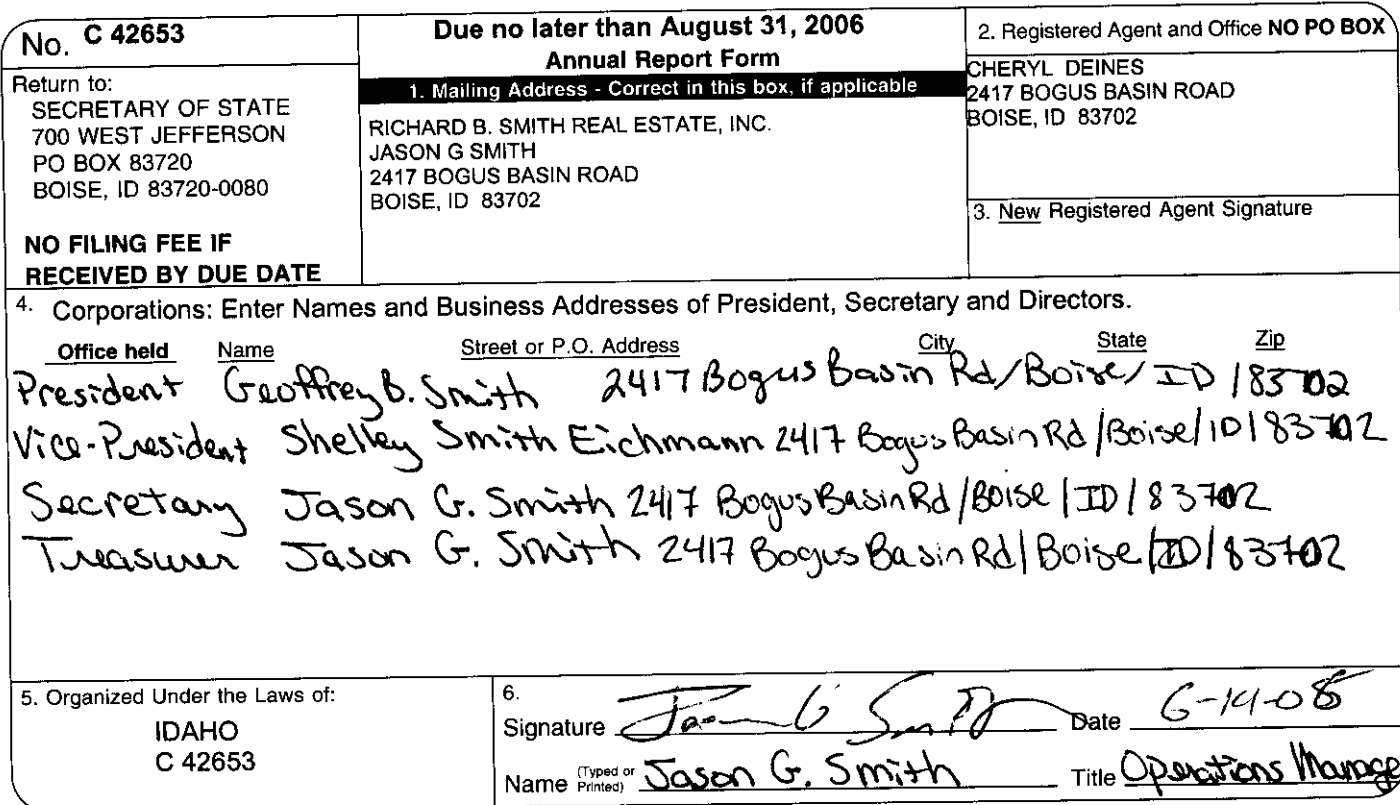 No. C 42653
Return to:
SECRETARY OF STATE
700 WEST JEFFERSON
PO BOX 83720
BOISE, ID 83720-0080
NO FILING FEE IF
RECEIVED BY DUE DATE
Due no later than August 31, 2006
Annual Report Form
1. Mailing Address - Correct in this box, if applicable
RICHARD B. SMITH REAL ESTATE, INC.
JASON G SMITH
2417 BOGUS BASIN ROAD
BOISE, ID 83702
2. Registered Agent and Office NO PO BOX
CHERYL DEINES
2417 BOGUS BASIN ROAD
BOISE, ID 83702
3. New Registered Agent Signature
4. Corporations: Enter Names and Business Addresses of President, Secretary and Directors.
Office held Name Street or P.O. Address City State Zip
President Geoffrey B. Smith 2417 Bogus Basin Rd/Boise/ID/83702
Vice-President Shelley Smith Eichmann 2417 Bogus Basin Rd/Boise/ID/83702
Secretary Jason G. Smith 2417 Bogus Basin Rd/Boise/ID/83702
Treasurer Jason G. Smith 2417 Bogus Basin Rd/Boise/ID/83702
5. Organized Under the Laws of:
IDAHO
C 42653
6.
Signature Jason G Smith Date
Name (Typed or Printed) Jason G. Smith Title Operations Manage